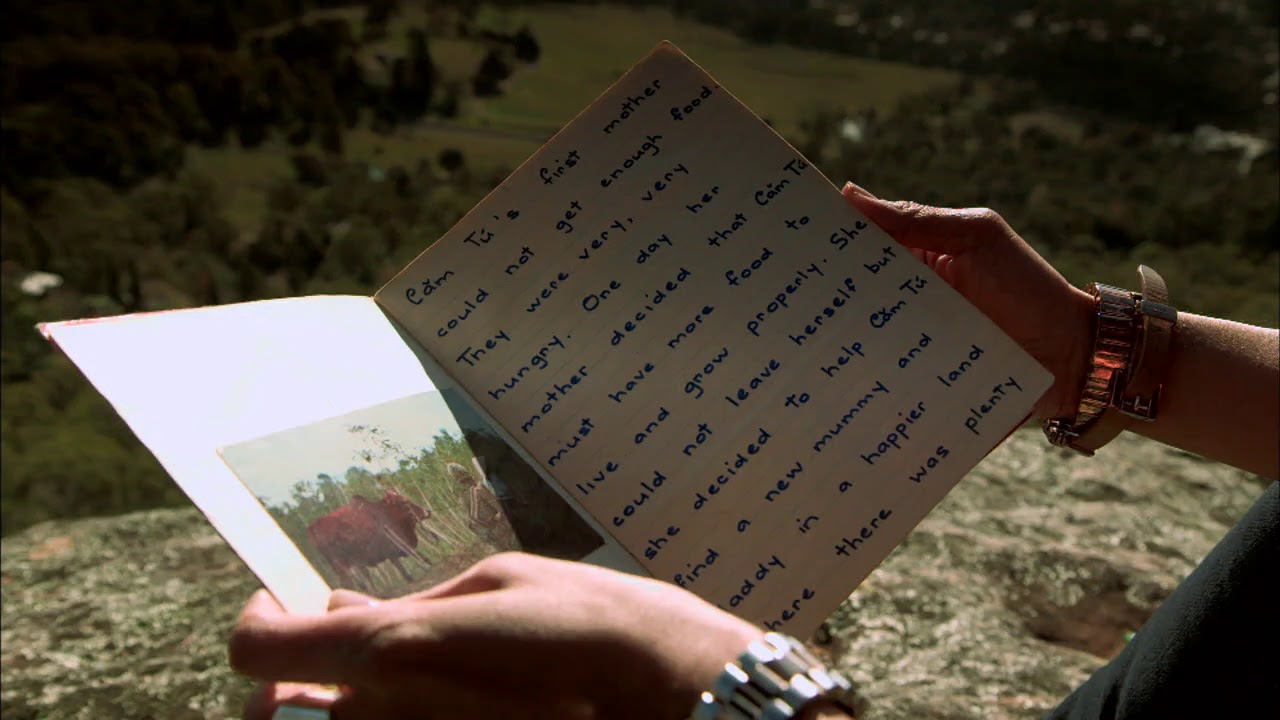 Cẩm Tú's first mother
could not get enough food.
They were very, very
hungry. One day her
mother decided that Cẩm Tú
must have more food to
live and grow properly. She
could not leave herself but
she decided to help Cẩm Tú
find a new mummy and
daddy in a happier land
where there was plenty